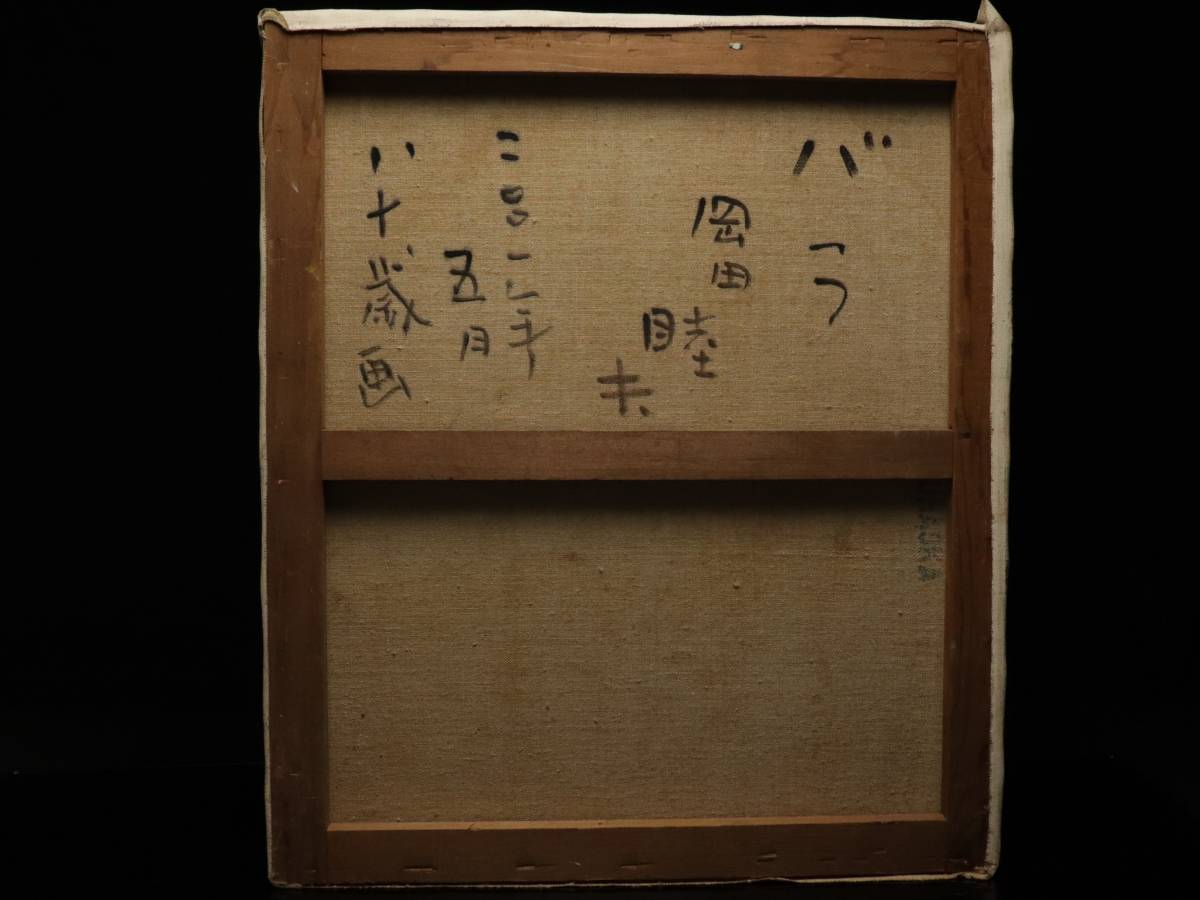 バラ
岡田
睦
二〇〇一年
五月
八十歳画